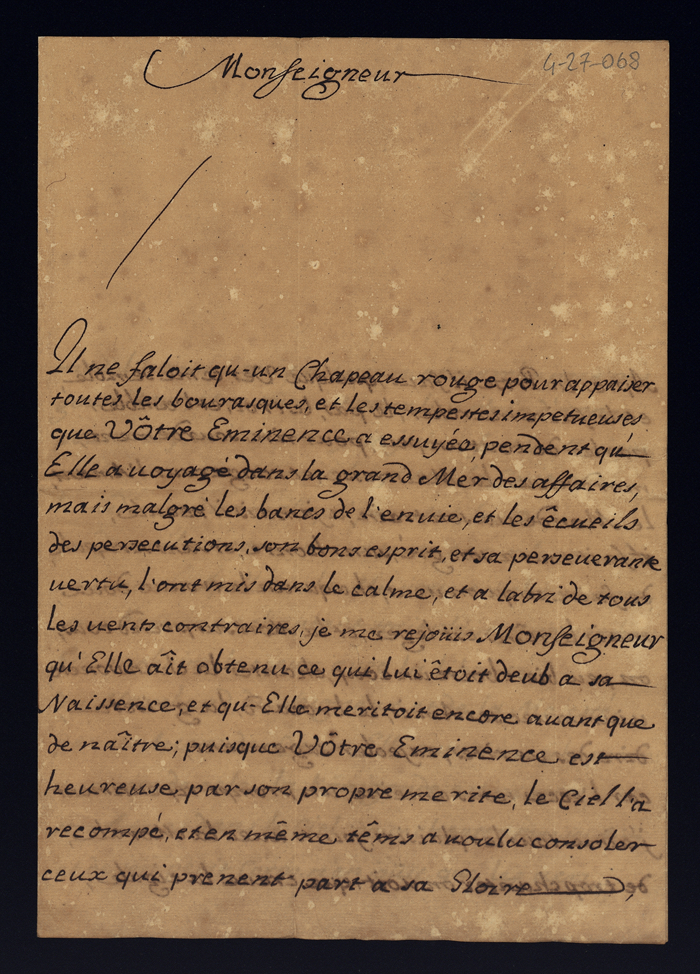 4-27-068
Monseigneur
Il ne faloit qu-un Chapeau rouge pour appaiser
toutes les bourasques, et les tempestes impetueuses
que Vôtre Eminence a essuyée, pendent qu'
Elle a uoyagé dans la grand Mer des affaires,
mais malgré les bancs de l'enuie, et les êcueils
des persecutions, son bons esprit, et sa perseuerante
uertu, l'ont mis dans le calme, et a labri de tous
les uents contraires, je me rejoüis Monseigneur
qu'Elle aît obtenu ce qui lui êtoit deub a sa
Naissence, et qu-Elle meritoit encore auant que
de naître; puisque Vôtre Eminence est
heureuse par son propre merite, le Ciel l'a
recompé, et en même têms a uoulu consoler
ceux qui prenent part a sa Gloire,